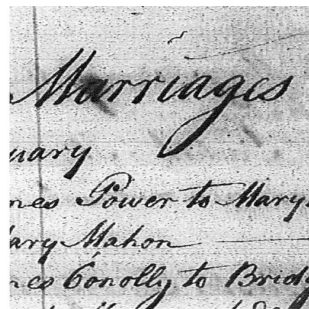 Marriages
uary
mes Power to Mary
Mary Mahon
mes Conolly to Bridg